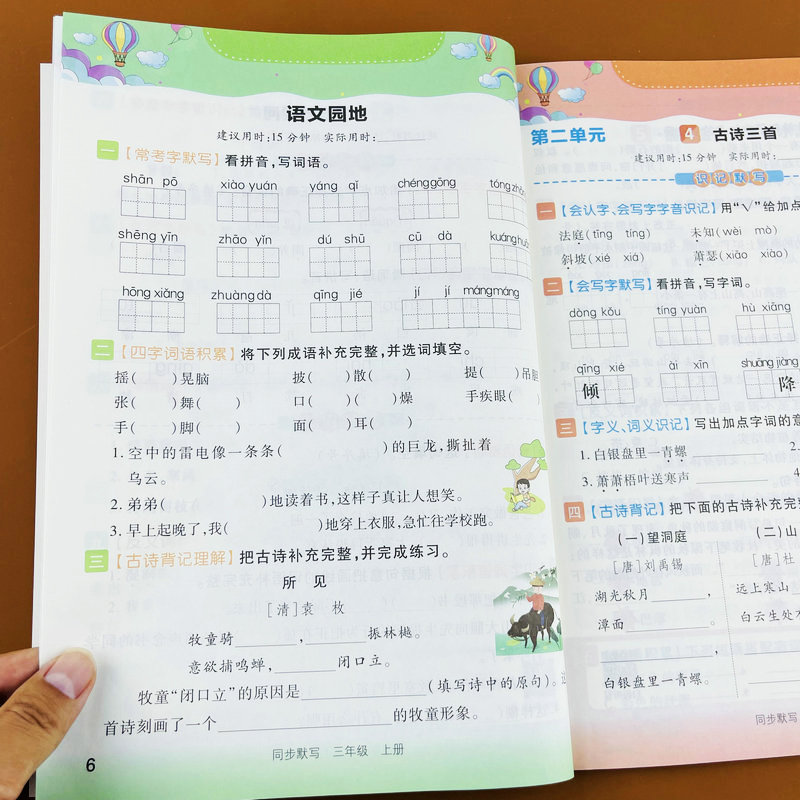 语文园地
建议用时:15分钟 实际用时:
一【常考字默写】看拼音,写词语。
shān pō xiào yuán yáng qǐ chéng gōng
shēng yīn zhāo yǐn dú shū cū dà
hōng xiǎng zhuàng dà qīng jié jí jí máng máng
二【四字词语积累】将下列成语补充完整,并选词填空。
摇( )晃脑 披( )散( ) 提( )吊胆
张( )舞( ) 口( )( )燥 手疾眼( )
手( )脚( ) 面( )耳( )
1.空中的雷电像一条条( )的巨龙,撕扯着
乌云。
2.弟弟( )地读着书,这样子真让人想笑。
3.早上起晚了,我( )地穿上衣服,急忙往学校跑。
三【古诗背记理解】把古诗补充完整,并完成练习。
所 见
[清]袁 枚
牧童骑________, ________振林樾。
意欲捕鸣蝉, ________闭口立。
牧童“闭口立”的原因是________(填写诗中的原句)。
首诗刻画了一个________的牧童形象。
同步默写 三年级 上册
6
第二单元
4 古诗三首
建议用时:15分钟 实际用时:
识记默写
一【会认字、会写字字音识记】用“√”给加点
法庭(tīng tíng) 未知(wèi mò)
斜坡(xié xiá) 萧瑟(xiāo xiào)
二【会写字默写】看拼音,写字词。
dòng kǒu tíng yuàn hù xiāng
qīng xié ài xīn shuāng jiàng
倾 降
三【字义、词义识记】写出加点字词的意
1.白银盘里一青螺________ 2.
3.萧萧梧叶送寒声________ 4
四【古诗背记】把下面的古诗补充完整
(一)望洞庭
[唐]刘禹锡
湖光秋月________,
潭面________。
________,
白银盘里一青螺。
(二)山
[唐]杜
远上寒山
白云生处
同步默写